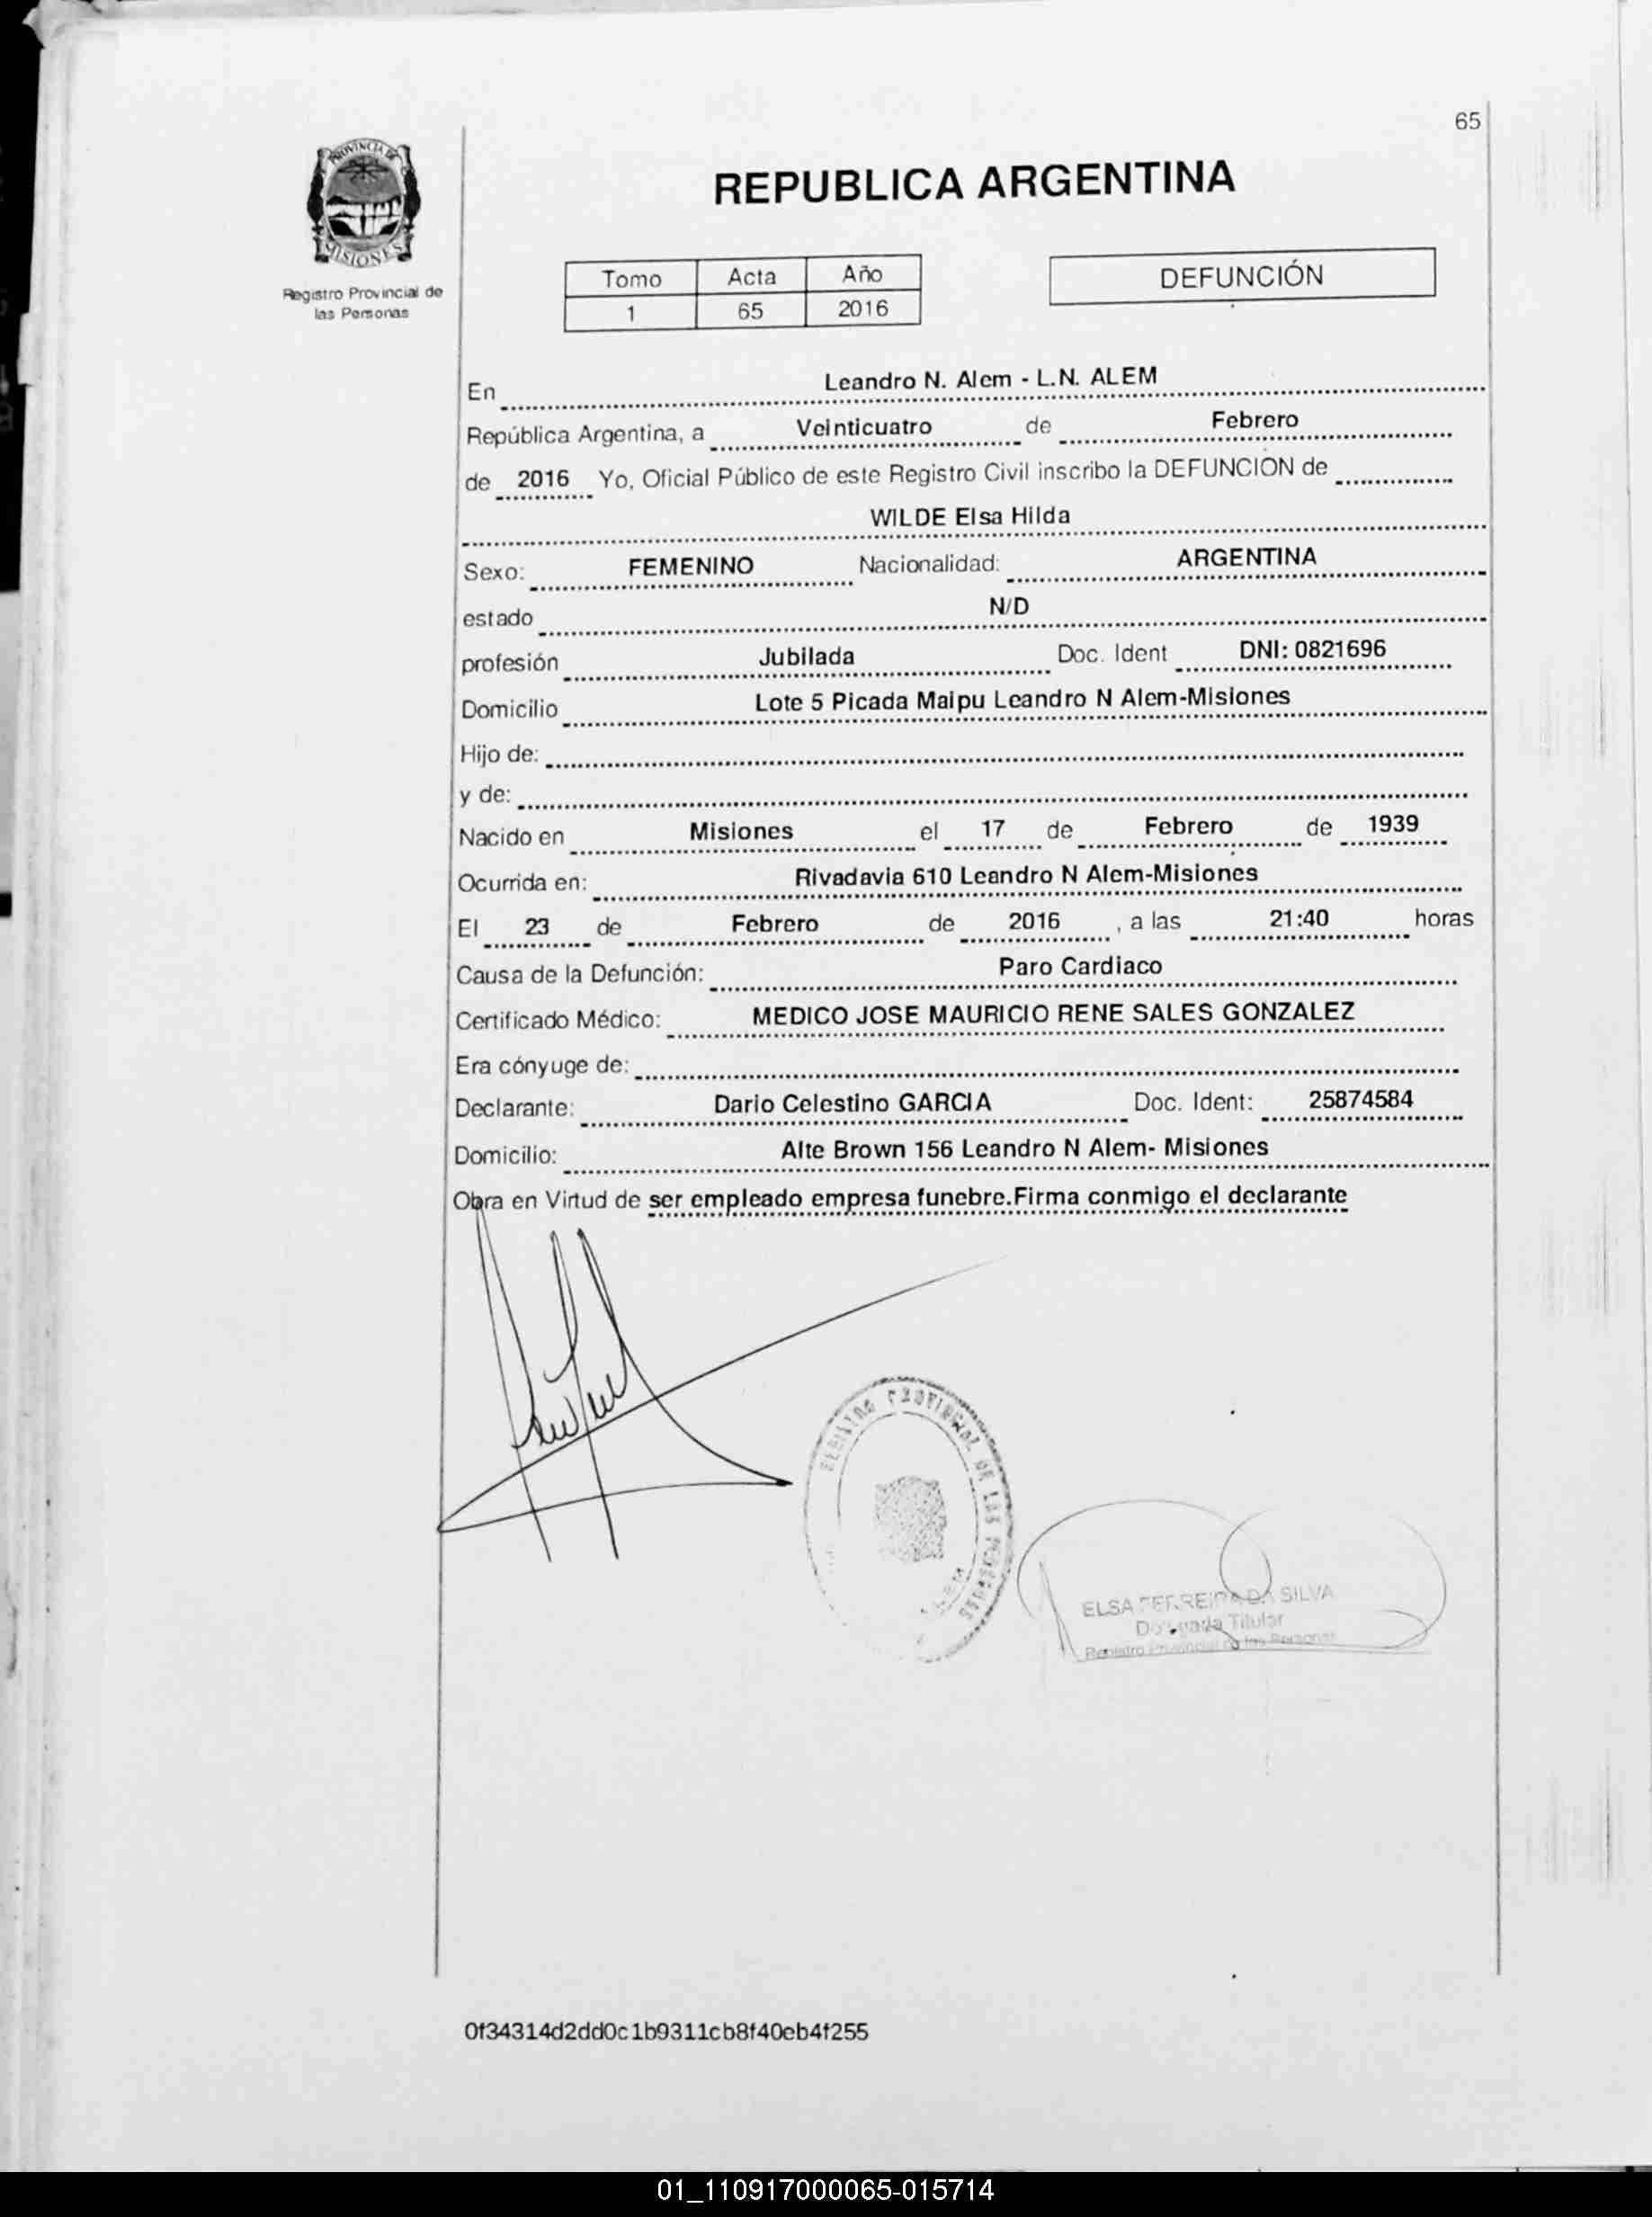 65
PROVINCIA DE
MISIONES
Registro Provincial de
las Personas
REPUBLICA ARGENTINA
Tomo Acta Año
1 65 2016
DEFUNCIÓN
En Leandro N. Alem - L.N. ALEM
República Argentina, a Veinticuatro de Febrero
de 2016 Yo, Oficial Público de este Registro Civil inscribo la DEFUNCIÓN de
WILDE Elsa Hilda
Sexo: FEMENINO Nacionalidad: ARGENTINA
estado N/D
profesión Jubilada Doc. Ident DNI: 0821696
Domicilio Lote 5 Picada Maipu Leandro N Alem-Misiones
Hijo de:
y de:
Nacido en Misiones el 17 de Febrero de 1939
Ocurrida en: Rivadavia 610 Leandro N Alem-Misiones
El 23 de Febrero de 2016 , a las 21:40 horas
Causa de la Defunción: Paro Cardiaco
Certificado Médico: MEDICO JOSE MAURICIO RENE SALES GONZALEZ
Era cónyuge de:
Declarante: Dario Celestino GARCIA Doc. Ident: 25874584
Domicilio: Alte Brown 156 Leandro N Alem- Misiones
Obra en Virtud de ser empleado empresa funebre.Firma conmigo el declarante
REGISTRO PROVINCIAL DE LAS PERSONAS
ELSA FERREIRA DA SILVA
Delegada Titular
Registro Provincial de las Personas
0f34314d2dd0c1b9311cb8f40eb4f255
01_110917000065-015714